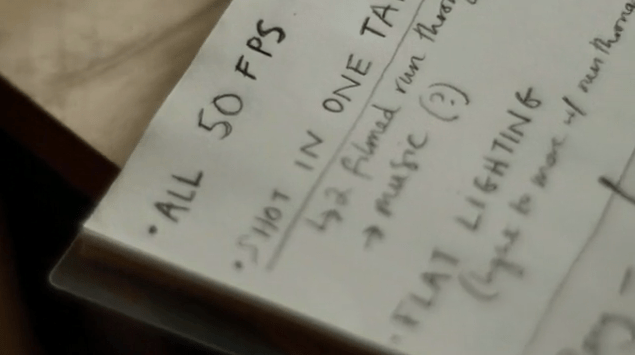 • ALL 50 FPS
• SHOT IN ONE TA
↳ 2 filmed run throu
→ music (?)
• FLAT LIGHTING
to more w/ run throug